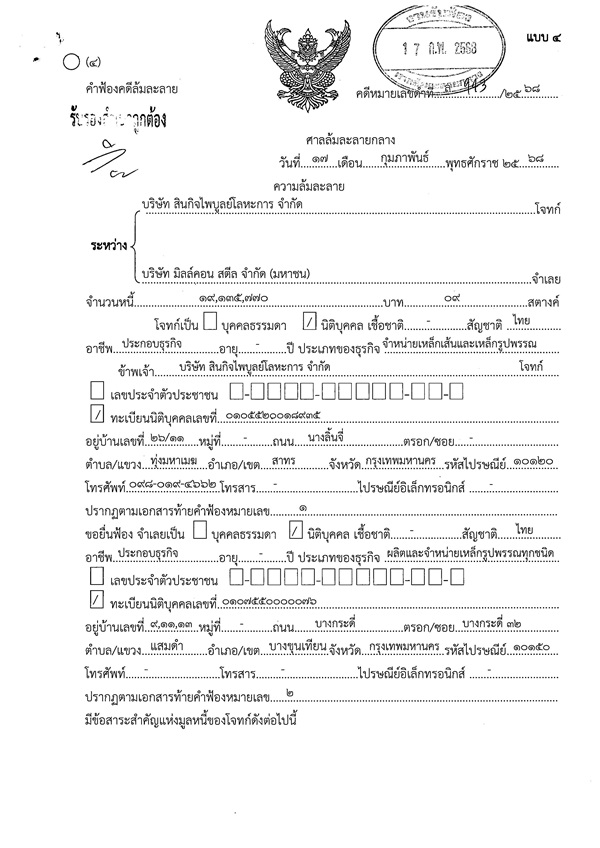 แบบ ๔
(๔)
คำฟ้องคดีล้มละลาย
17 ก.พ. 2568
คดีหมายเลขดำที่ /๒๕๖๘
ศาลล้มละลายกลาง
วันที่ ๑๗ เดือน กุมภาพันธ์ พุทธศักราช ๒๕๖๘
ความล้มละลาย
บริษัท สินกิจไพบูลย์โลหะการ จำกัด โจทก์
ระหว่าง
บริษัท มิลล์คอน สตีล จำกัด (มหาชน) จำเลย
จำนวนหนี้ ๑๙,๑๓๕,๗๗๐ บาท ๐๙ สตางค์
โจทก์เป็น บุคคลธรรมดา / นิติบุคคล เชื้อชาติ - สัญชาติ ไทย
อาชีพ ประกอบธุรกิจ อายุ - ปี ประเภทของธุรกิจ จำหน่ายเหล็กเส้นและเหล็กรูปพรรณ
ข้าพเจ้า บริษัท สินกิจไพบูลย์โลหะการ จำกัด โจทก์
เลขประจำตัวประชาชน
/ ทะเบียนนิติบุคคลเลขที่ ๐๑๐๕๕๒๐๐๑๘๙๓๕
อยู่บ้านเลขที่ ๒๖/๑๑ หมู่ที่ - ถนน นางลิ้นจี่ ตรอก/ซอย -
ตำบล/แขวง ทุ่งมหาเมฆ อำเภอ/เขต สาทร จังหวัด กรุงเทพมหานคร รหัสไปรษณีย์ ๑๐๑๒๐
โทรศัพท์ ๐๙๘-๐๑๙-๔๖๖๒ โทรสาร - ไปรษณีย์อิเล็กทรอนิกส์ -
ปรากฏตามเอกสารท้ายคำฟ้องหมายเลข ๑
ขอยื่นฟ้อง จำเลยเป็น บุคคลธรรมดา / นิติบุคคล เชื้อชาติ - สัญชาติ ไทย
อาชีพ ประกอบธุรกิจ อายุ - ปี ประเภทของธุรกิจ ผลิตและจำหน่ายเหล็กรูปพรรณทุกชนิด
เลขประจำตัวประชาชน
/ ทะเบียนนิติบุคคลเลขที่ ๐๑๐๗๕๕๐๐๐๐๐๗๖
อยู่บ้านเลขที่ ๙,๑๑,๑๓ หมู่ที่ - ถนน บางกระดี่ ตรอก/ซอย บางกระดี่ ๓๒
ตำบล/แขวง แสมดำ อำเภอ/เขต บางขุนเทียน จังหวัด กรุงเทพมหานคร รหัสไปรษณีย์ ๑๐๑๕๐
โทรศัพท์ - โทรสาร - ไปรษณีย์อิเล็กทรอนิกส์ -
ปรากฏตามเอกสารท้ายคำฟ้องหมายเลข ๒
มีข้อสาระสำคัญแห่งมูลหนี้ของโจทก์ดังต่อไปนี้